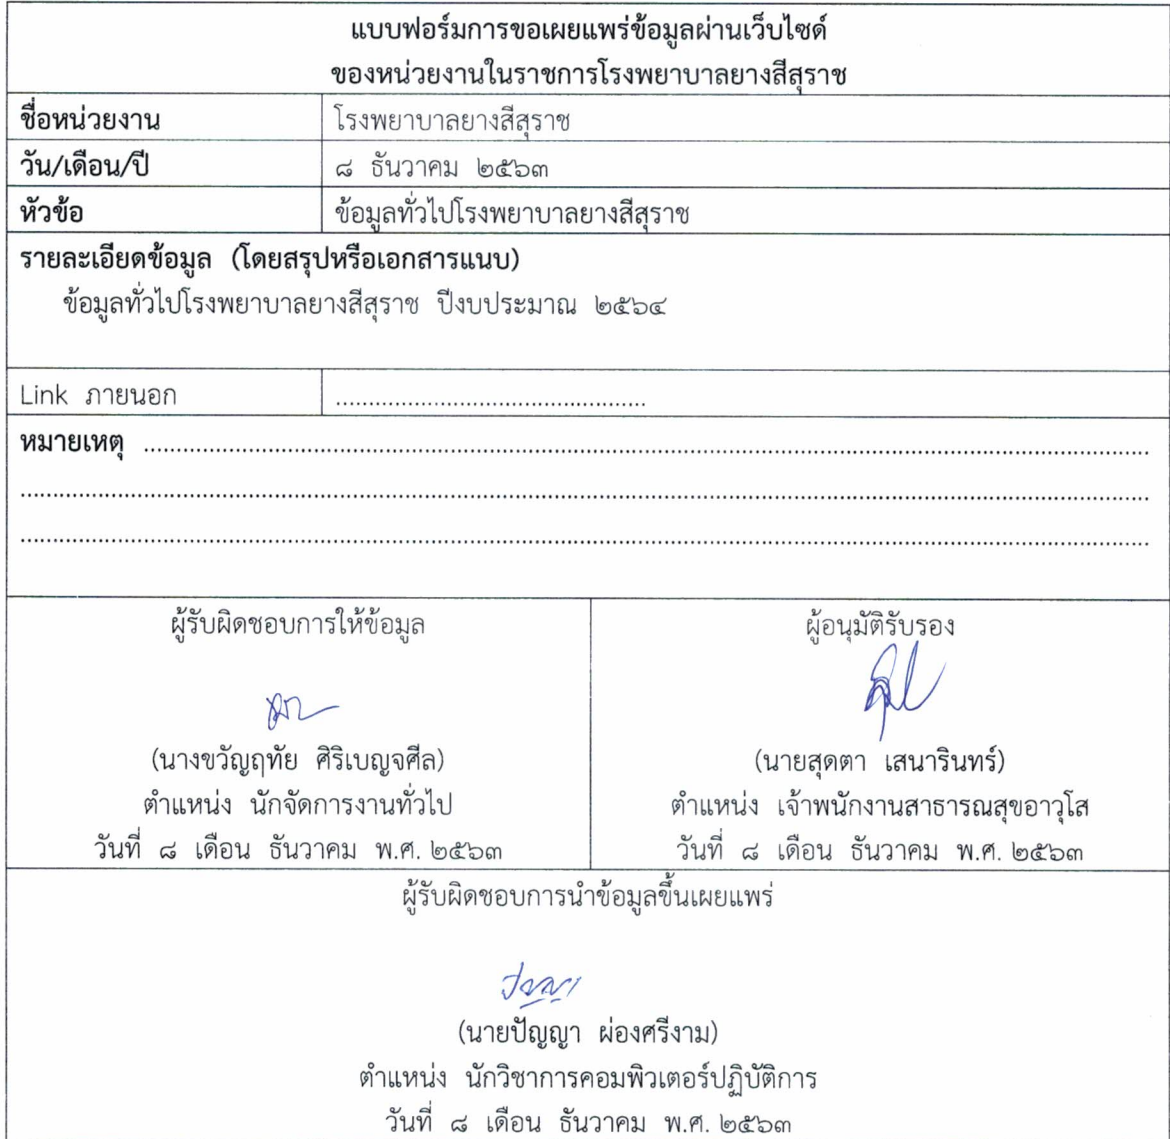 แบบฟอร์มการขอเผยแพร่ข้อมูลผ่านเว็บไซด์
ของหน่วยงานในราชการโรงพยาบาลยางสีสุราช
ชื่อหน่วยงาน โรงพยาบาลยางสีสุราช
วัน/เดือน/ปี ๘ ธันวาคม ๒๕๖๓
หัวข้อ ข้อมูลทั่วไปโรงพยาบาลยางสีสุราช
รายละเอียดข้อมูล (โดยสรุปหรือเอกสารแนบ)
ข้อมูลทั่วไปโรงพยาบาลยางสีสุราช ปีงบประมาณ ๒๕๖๔
Link ภายนอก ................................................
หมายเหตุ ................................................................................
................................................................................
................................................................................
ผู้รับผิดชอบการให้ข้อมูล
(นางขวัญฤทัย ศิริเบญจศีล)
ตำแหน่ง นักจัดการงานทั่วไป
วันที่ ๘ เดือน ธันวาคม พ.ศ. ๒๕๖๓
ผู้อนุมัติรับรอง
(นายสุดตา เสนารินทร์)
ตำแหน่ง เจ้าพนักงานสาธารณสุขอาวุโส
วันที่ ๘ เดือน ธันวาคม พ.ศ. ๒๕๖๓
ผู้รับผิดชอบการนำข้อมูลขึ้นเผยแพร่
ปัญญา
(นายปัญญา ผ่องศรีงาม)
ตำแหน่ง นักวิชาการคอมพิวเตอร์ปฏิบัติการ
วันที่ ๘ เดือน ธันวาคม พ.ศ. ๒๕๖๓